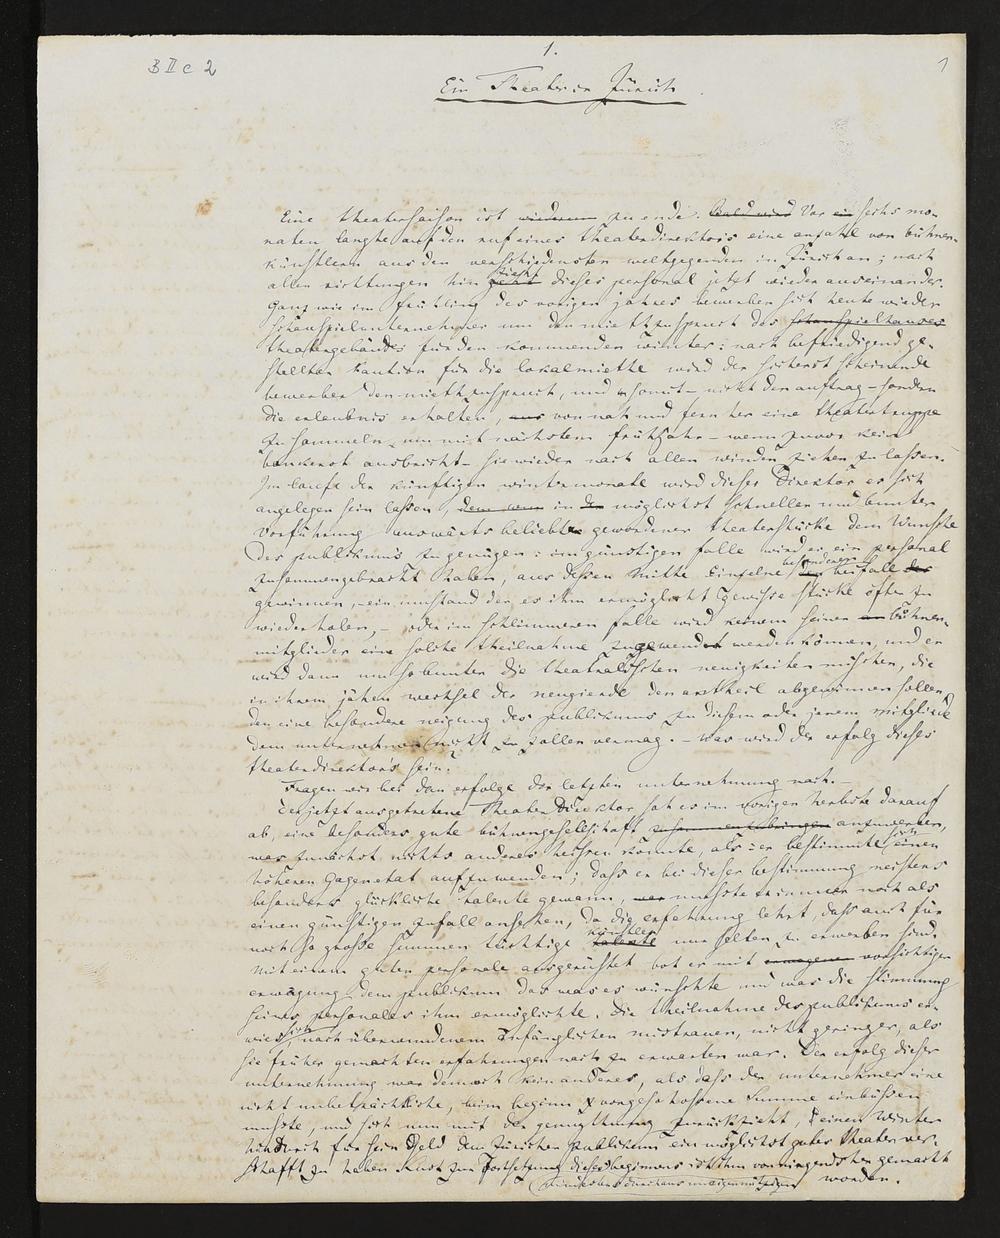 B II c 2
1.
1
Ein Theater in Zürich.
Eine theatersaison ist wiederum zu ende. Bald wird Vor ein sechs mo-
naten langte auf den ruf eines theaterdirektors eine anzahl von bühnen-
künstlern aus den verschiedensten weltgegenden in Zürich an; nach
allen richtungen hin geht zieht dieses personal jetzt wieder auseinander.
Ganz wie im frühling des vorigen jahres bewerben sich heute wieder
schauspielunternehmer um den miethzuspruch des schauspielhauses
theatergebäudes für den kommenden winter: nach befriedigend ge-
stellter kaution für die lokalmiethe wird der sicherst scheinende
bewerber den miethzuspruch, und somit – nicht den auftrag – sondern
die erlaubnis erhalten, aus von nah und fern her eine theatertruppe
zu sammeln, um mit nächstem frühjahr – wenn zuvor kein
bankerot ausbricht – sie wieder nach allen winden ziehen zu lassen.
Im laufe der künftigen wintermonate wird dieser Direktor es sich
angelegen sein lassen, dem in der möglichst schnellen und bunten
Vorführung auswärts beliebt gewordener theaterstücke dem Wunsche
des publikums zu genügen: im günstigen falle wird er ein personal
zusammengebracht haben, aus dessen mitte Einzelne den besonderen beifall des
gewinnen, – ein umstand der es ihm ermöglicht gewisse stücke öfter zu
wiederholen, – oder im schlimmeren falle wird keinem seiner bühnen-
mitglieder eine solche theilnahme zugewendet werden können, und er
wird dann um so bunter die theatralischen neuigkeiten mischen, die
in ihrem jähen wechsel der neugierde den antheil abgewinnen sollen,
den eine besondere neigung des publikums zu diesem oder jenem mitgliede
dem unternehmen nicht zu zollen vermag. – Was wird der erfolg dieses
theaterdirektors sein?
Fragen wir bei dem erfolge der letzten unternehmung nach. –
Der jetzt ausgetretene Theater Direktor sah es im vorigen herbste darauf
ab, eine besonders gute bühnengesellschaft zusammenzubringen anzuwerben,
was zunächst nichts anderes heissen konnte, als: er bestimmte sich einen
höheren Gagenetat aufzuwenden; dass er bei dieser bestimmung meistens
besonders glückliche Talente gewann, musste er immer noch als
einen günstigen zufall ansehen, da die erfahrung lehrt, dass auch für
noch so grosse summen tüchtige talente künstler nur selten zu erwerben sind.
Mit einem guten personale ausgerüstet bot er mit vorsichtiger
erwägung dem publikum das was es wünschte und was die stimmung
seines personales ihm ermöglichte. Die theilnahme des publikums er-
wies sich, nach überwundenem anfänglichen mistrauen, nicht geringer, als
sie früher gemachten erfahrungen nach zu erwarten war. Der erfolg dieser
unternehmung war demnach kein anderer, als dass der unternehmer eine
nicht unbeträchtliche, beim beginn vorgeschossene Summe einbüssen
musste, und sich nun mit der genugthuung zurückzieht, einen Winter
hindurch für sein Geld dem Züricher publikum ein möglichst gutes theater ver-
schafft zu haben. Lust zur Fortsetzung dieses beginnens ist ihm von nirgends her gemacht
worden.